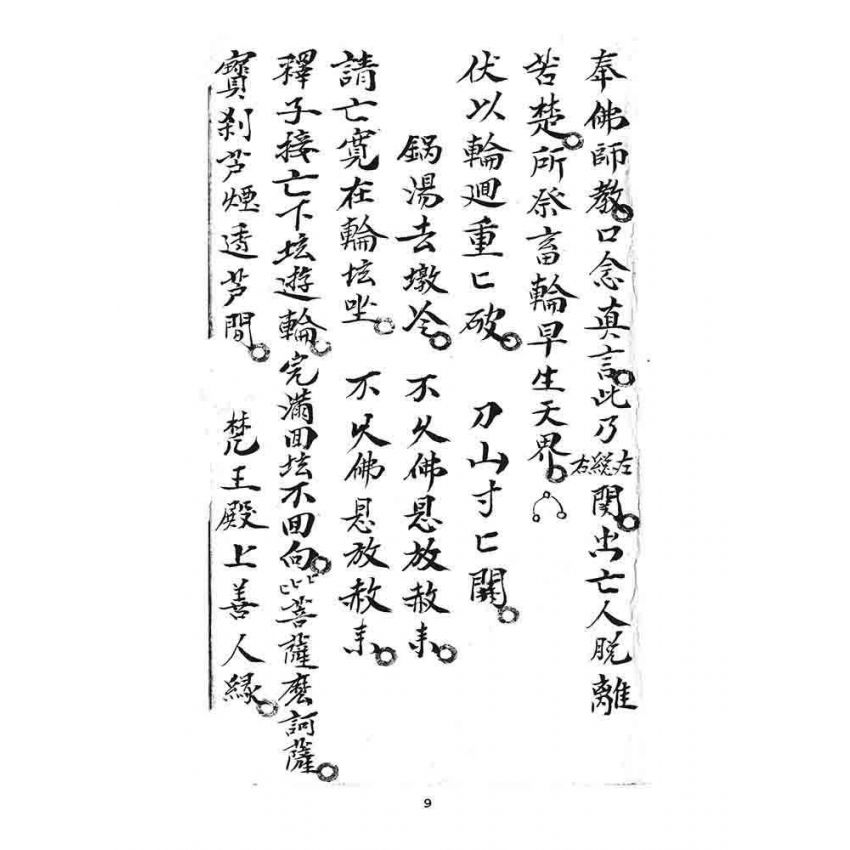 奉佛師教口念真言此乃左縱右関出亡人脫離
苦楚所祭畜輪早生天界
伏以輪迴重匕破 刀山寸匕開
鍋湯去墩冷 不久佛恩放赦来
請亡寬在輪坛坐 不久佛恩放赦来
釋子接亡下坛遊輪完滿回坛不回向匕匕菩薩麽訶薩
寶刹芦煙透芦間 梵王殿上善人緣
9